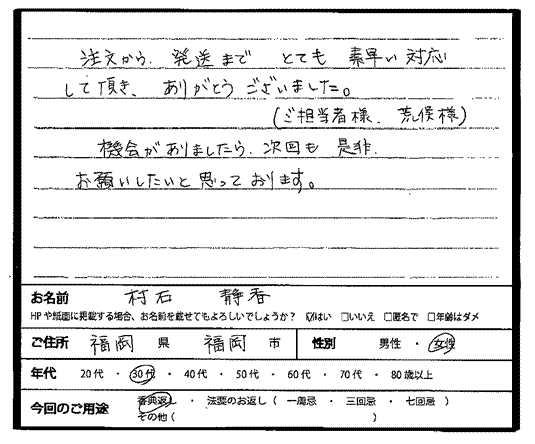 注文から、発送まで とても 素早い対応
して頂き、ありがとうございました。
(ご担当者様、荒俣様)
機会がありましたら、次回も 是非、
お願いしたいと思っております。
お名前 村石 静香
HPや紙面に掲載する場合、お名前を載せてもよろしいでしょうか? ☑はい □いいえ □匿名で □年齢はダメ
ご住所 福岡 県 福岡 市 性別 男性 ・ 女性
年代 20代 ・ 30代 ・ 40代 ・ 50代 ・ 60代 ・ 70代 ・ 80歳以上
今回のご用途 香典返し ・ 法要のお返し ( 一周忌 ・ 三回忌 ・ 七回忌 )
その他 ( )